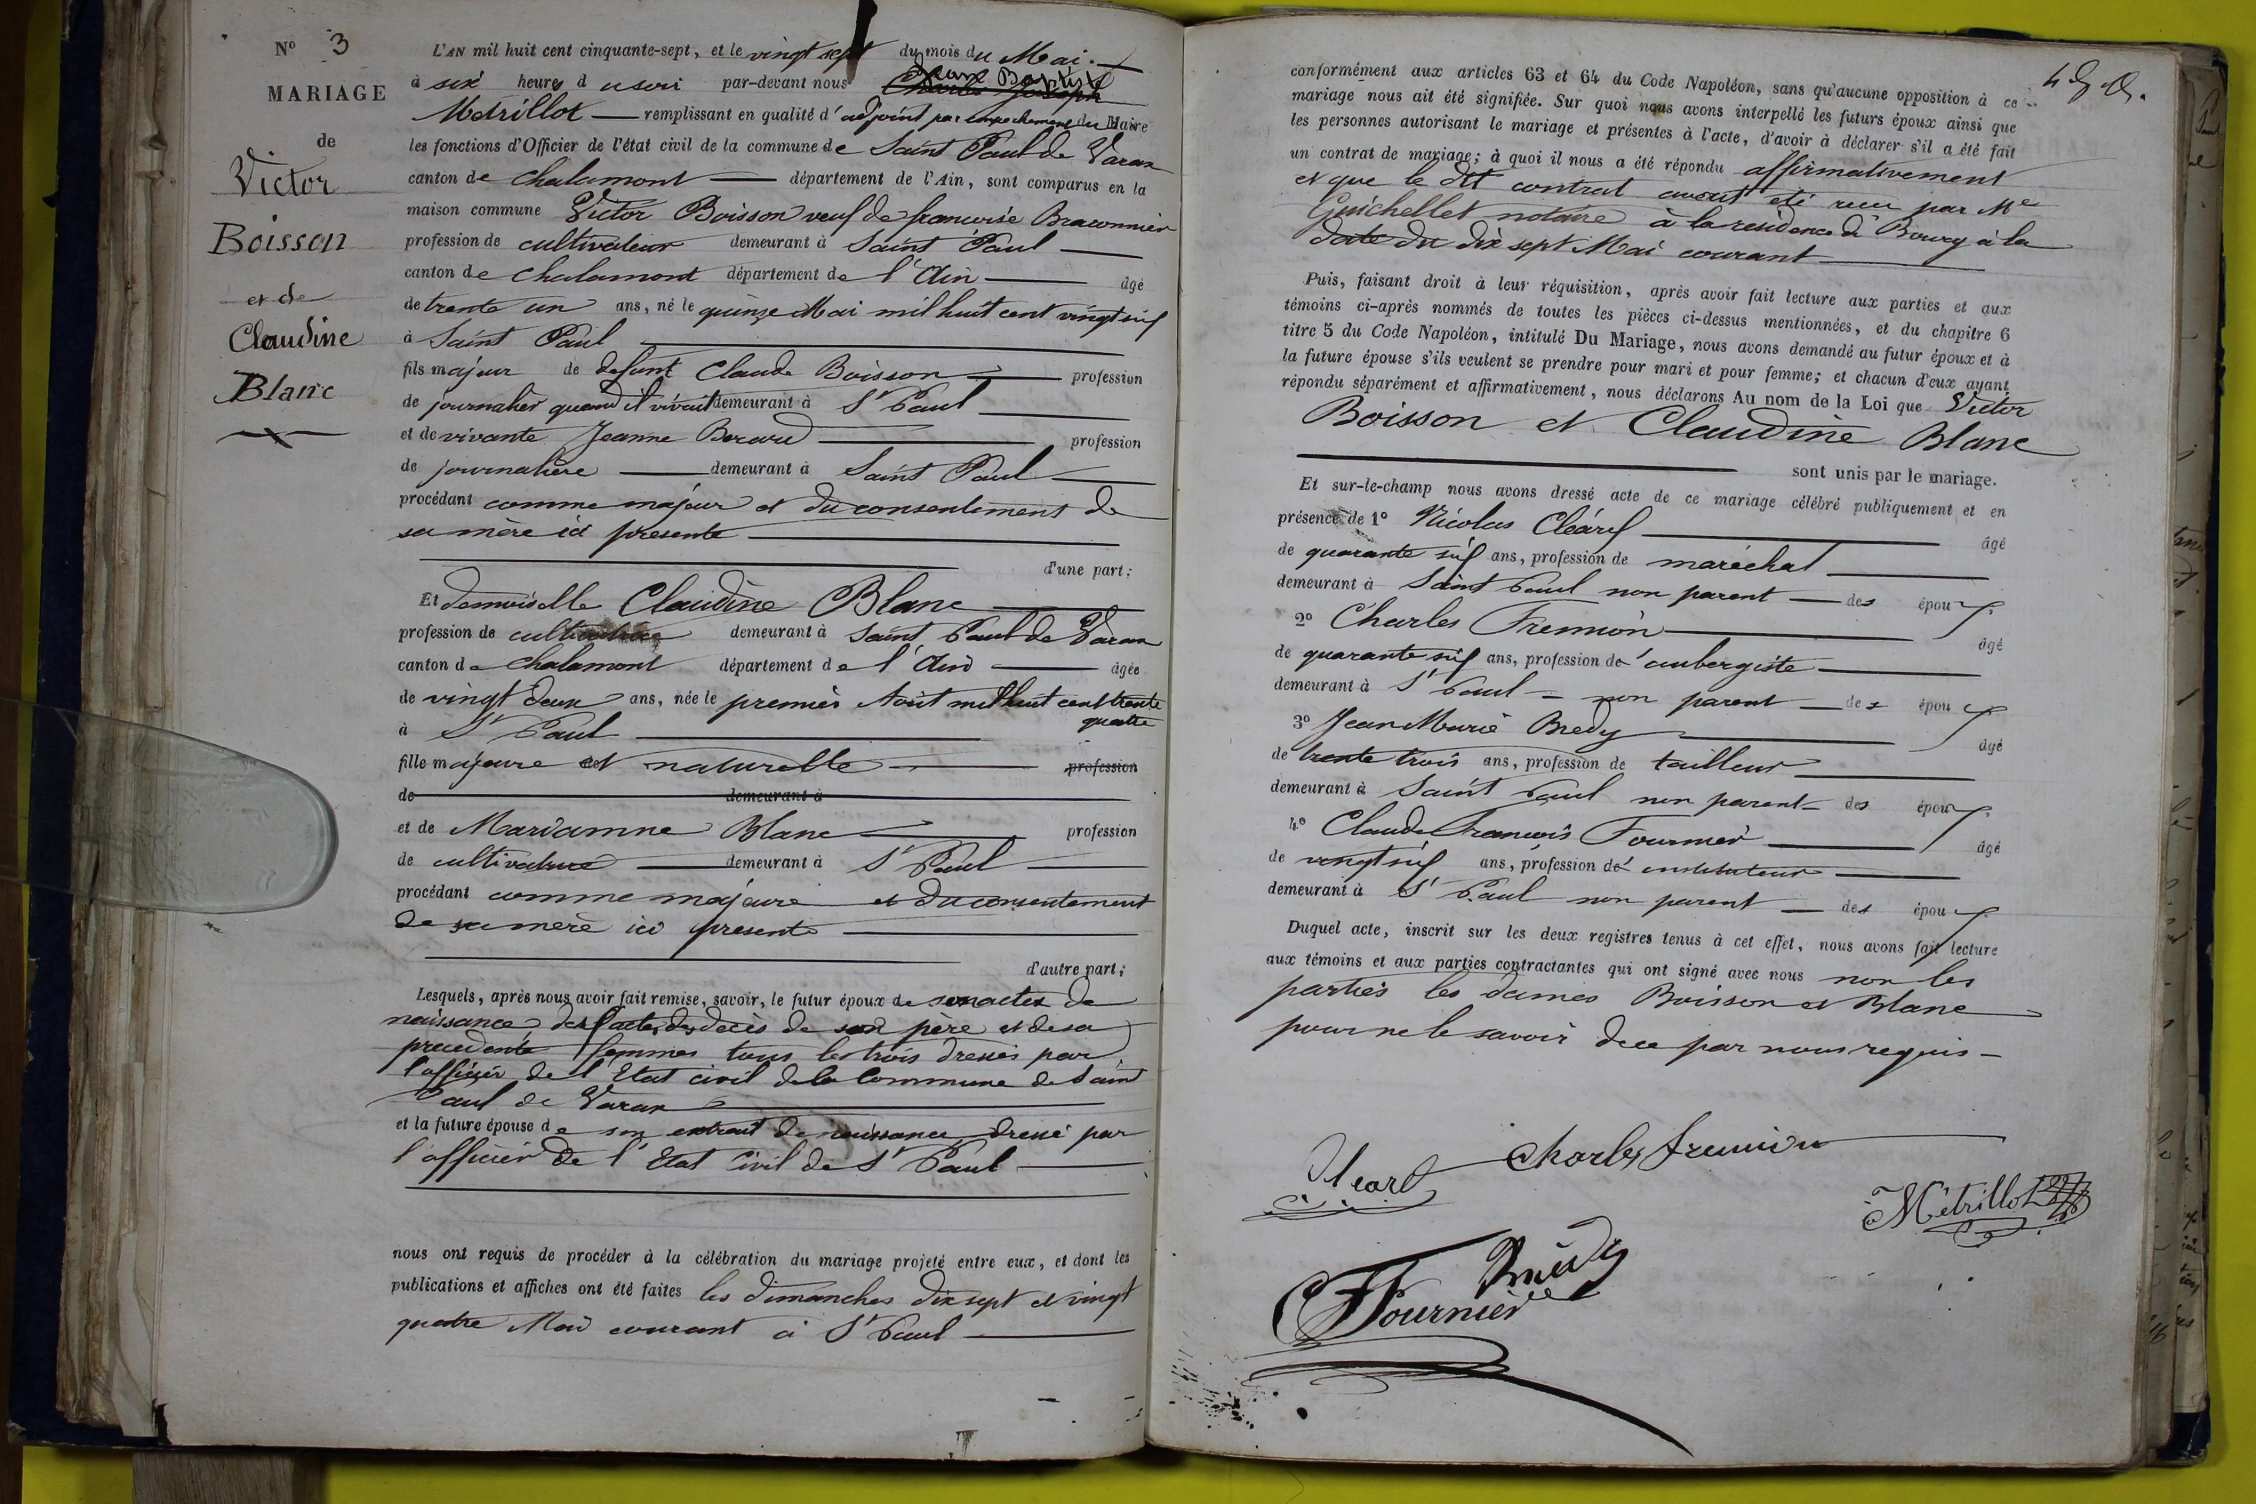 N° 3
MARIAGE
de
Victor
Boisson
et de
Claudine
Blanc
L'AN mil huit cent cinquante-sept, et le vingt sept du mois du Mai
à six heures d u soir par-devant nous Jean Baptiste
Métrillot remplissant en qualité d'adjoint par empechement du Maire
les fonctions d'Officier de l'état civil de la commune de Saint Paul de Varax
canton de Chalamont département de l'Ain, sont comparus en la
maison commune Victor Boisson veuf de francoise Braconnier
profession de cultivateur demeurant à Saint Paul
canton de chalamont département de l'Ain âgé
de trente un ans, né le quinze Mai mil huit cent vingt six
à Saint Paul
fils majeur de defunt Claude Boisson profession
de journalier quand il vivait demeurant à St Paul
et de vivante Jeanne Berard profession
de journalière demeurant à Saint Paul
procédant comme majeur et du consentement de
sa mère ici presente
d'une part;
Et demoiselle Claudine Blanc
profession de cultivatrice demeurant à Saint Paul de Varax
canton de Chalamont département de l'Ain âgée
de vingt deux ans, née le premier Aout mil huit cent trente
quatre
à St Paul
fille majeure et naturelle profession
de demeurant à
et de Mariamne Blanc profession
de cultivatrice demeurant à St Paul
procédant comme majeure et du consentement
de sa mère ici presente
d'autre part;
Lesquels, après nous avoir fait remise, savoir, le futur époux de son actes de
naissance des actes de decès de son père et de sa
precedente femmes tous les trois dressés par
l'officier de l'Etat civil de la Commune de Saint
Paul de Varax
et la future épouse de son extrait de naissance dressé par
l'officier de l'Etat Civil de St Paul
nous ont requis de procéder à la célébration du mariage projeté entre eux, et dont les
publications et affiches ont été faites les dimanches dix sept et vingt
quatre Mai courant à St Paul
conformément aux articles 63 et 64 du Code Napoléon, sans qu'aucune opposition à ce
mariage nous ait été signifiée. Sur quoi nous avons interpellé les futurs époux ainsi que
les personnes autorisant le mariage et présentes à l'acte, d'avoir à déclarer s'il a été fait
un contrat de mariage; à quoi il nous a été répondu affirmativement
et que le dit contrat avait eté recu par Me
Guichellet notaire à la residence de Bourg à la
date du dix sept Mai courant
Puis, faisant droit à leur réquisition, après avoir fait lecture aux parties et aux
témoins ci-après nommés de toutes les pièces ci-dessus mentionnées, et du chapitre 6
titre 5 du Code Napoléon, intitulé Du Mariage, nous avons demandé au futur époux et à
la future épouse s'ils veulent se prendre pour mari et pour femme; et chacun d'eux ayant
répondu séparément et affirmativement, nous déclarons Au nom de la Loi que Victor
Boisson et Claudine Blanc
sont unis par le mariage.
Et sur-le-champ nous avons dressé acte de ce mariage célébré publiquement et en
présence de 1° Nicolas Cléard âgé
de quarante six ans, profession de maréchal
demeurant à Saint Paul non parent des épou
2° Charles Fremion âgé
de quarante six ans, profession de aubergiste
demeurant à St Paul non parent des épou
3° Jean Marie Bredy âgé
de trente trois ans, profession de tailleur
demeurant à Saint Paul non parent des épou
4° Claude Francois Fournier âgé
de vingt six ans, profession de instituteur
demeurant à St Paul non parent des épou
Duquel acte, inscrit sur les deux registres tenus à cet effet, nous avons fait lecture
aux témoins et aux parties contractantes qui ont signé avec nous non les
parties les dames Boisson et Blanc
pour ne le savoir de ce par nous requis
Charles fremion
Métrillot
Brédy
CFFournier